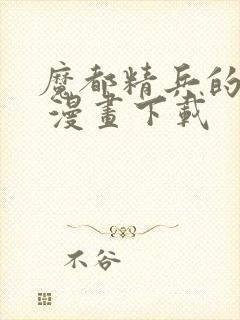 魔都精兵的
漫畫下載
不谷